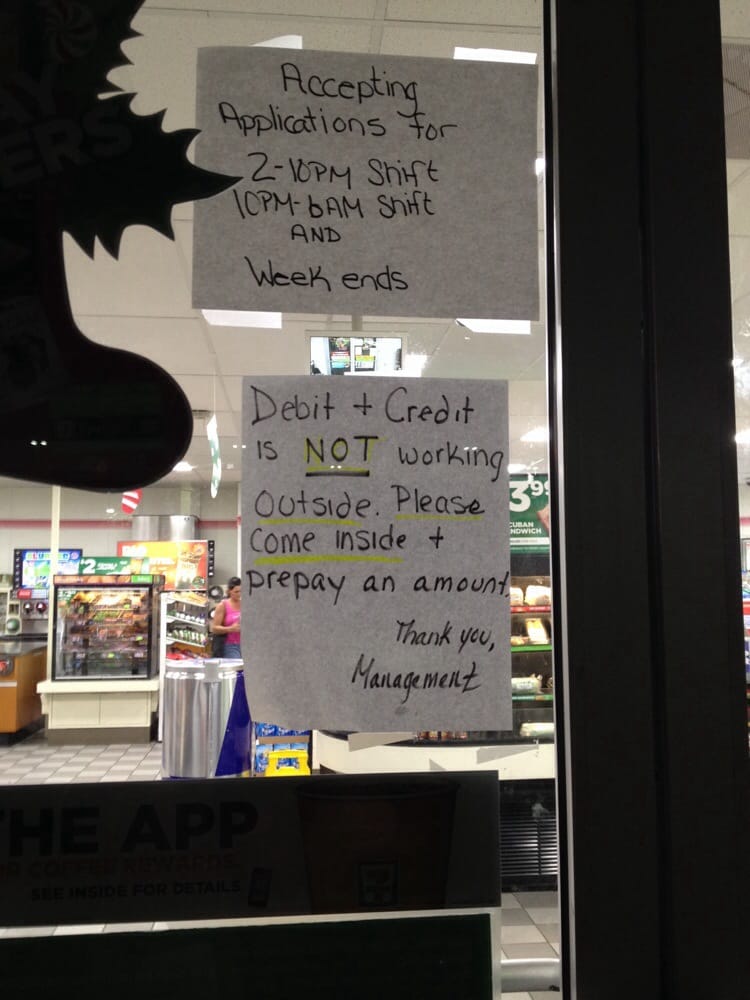 AY
ERS
Accepting
Applications for
2-10PM Shift
10PM-6AM Shift
AND
Week ends
Debit + Credit
is NOT working
outside. Please
Come inside +
prepay an amount.
Thank you,
Management
3.99
CUBAN
NDWICH
$2
THE APP
R COFFEE REWARDS.
SEE INSIDE FOR DETAILS
7